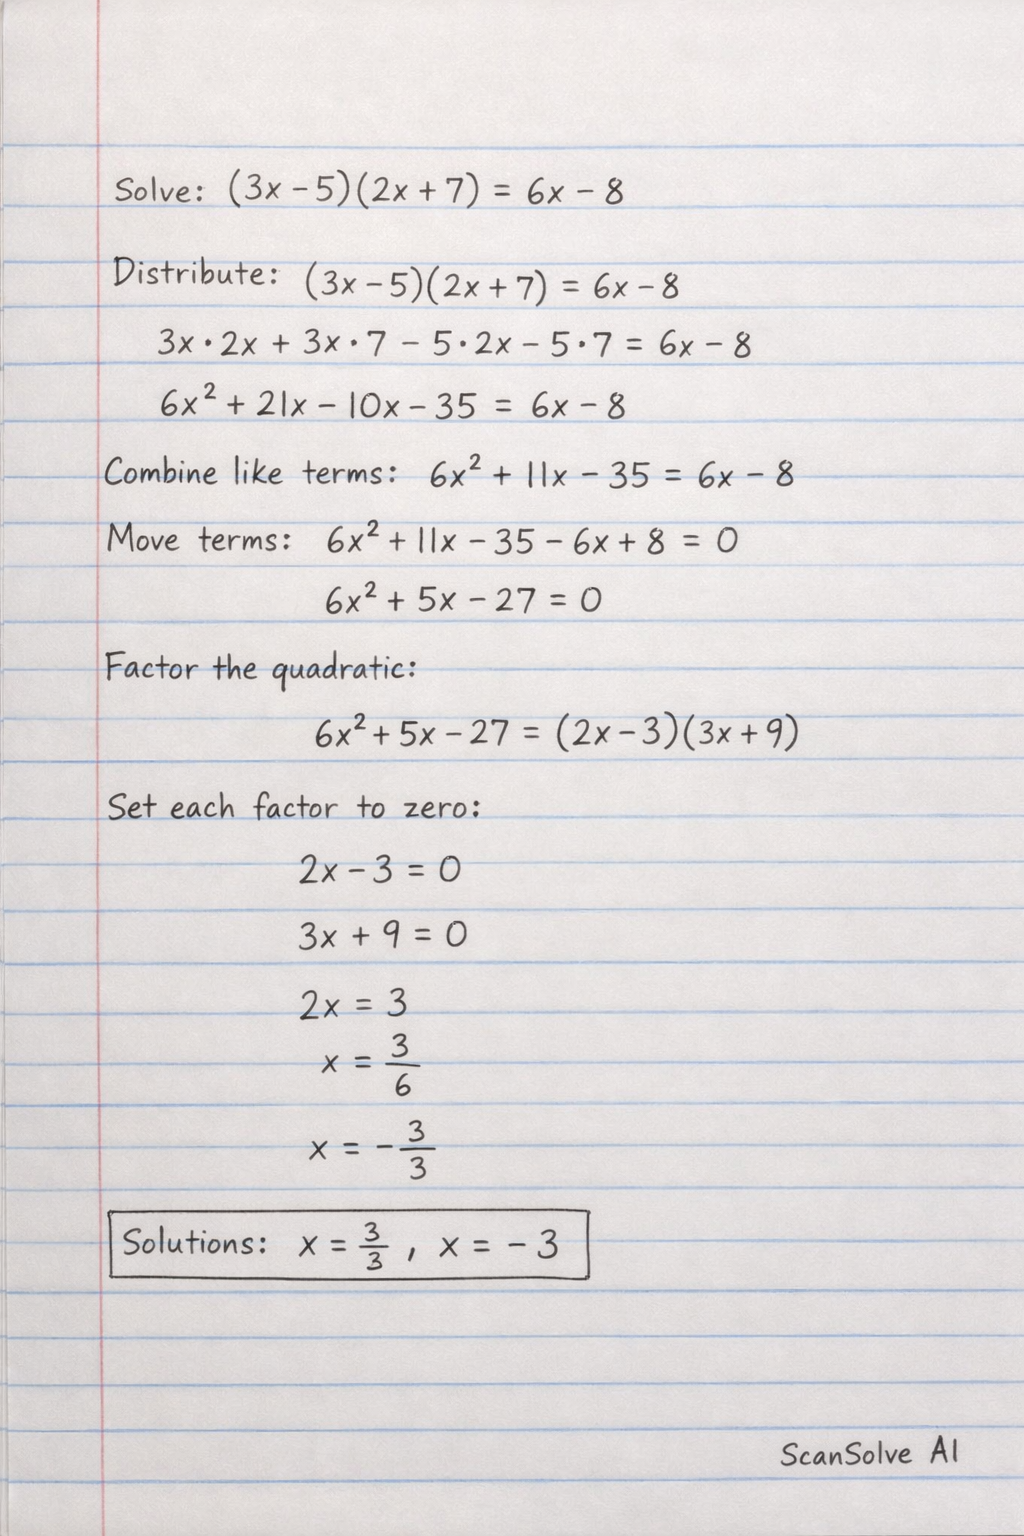 Solve: (3x − 5)(2x + 7) = 6x − 8
Distribute: (3x − 5)(2x + 7) = 6x − 8
3x · 2x + 3x · 7 − 5 · 2x − 5 · 7 = 6x − 8
6x² + 21x − 10x − 35 = 6x − 8
Combine like terms: 6x² + 11x − 35 = 6x − 8
Move terms: 6x² + 11x − 35 − 6x + 8 = 0
6x² + 5x − 27 = 0
Factor the quadratic:
6x² + 5x − 27 = (2x − 3)(3x + 9)
Set each factor to zero:
2x − 3 = 0
3x + 9 = 0
2x = 3
x = 3/6
x = −3/3
Solutions: x = 3/3 , x = −3
ScanSolve AI